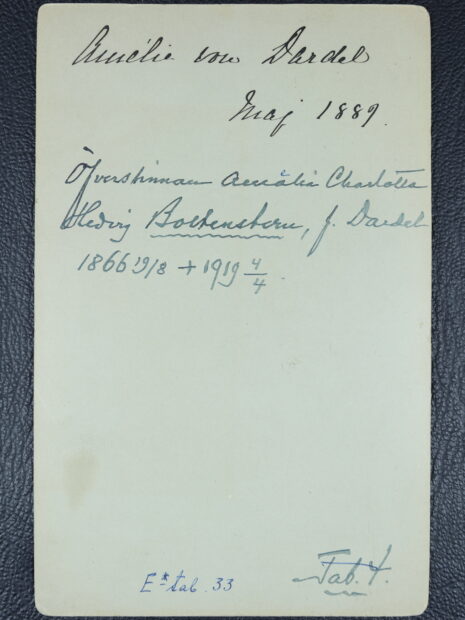 Amélie von Dardel
Maj 1889.
Öfverstinnan Amalia Charlotta
Hedvig Boltenstern, f. Dardel
1866 19/8 + 1919 4/4.
Tab. 4.
E* tab. 33